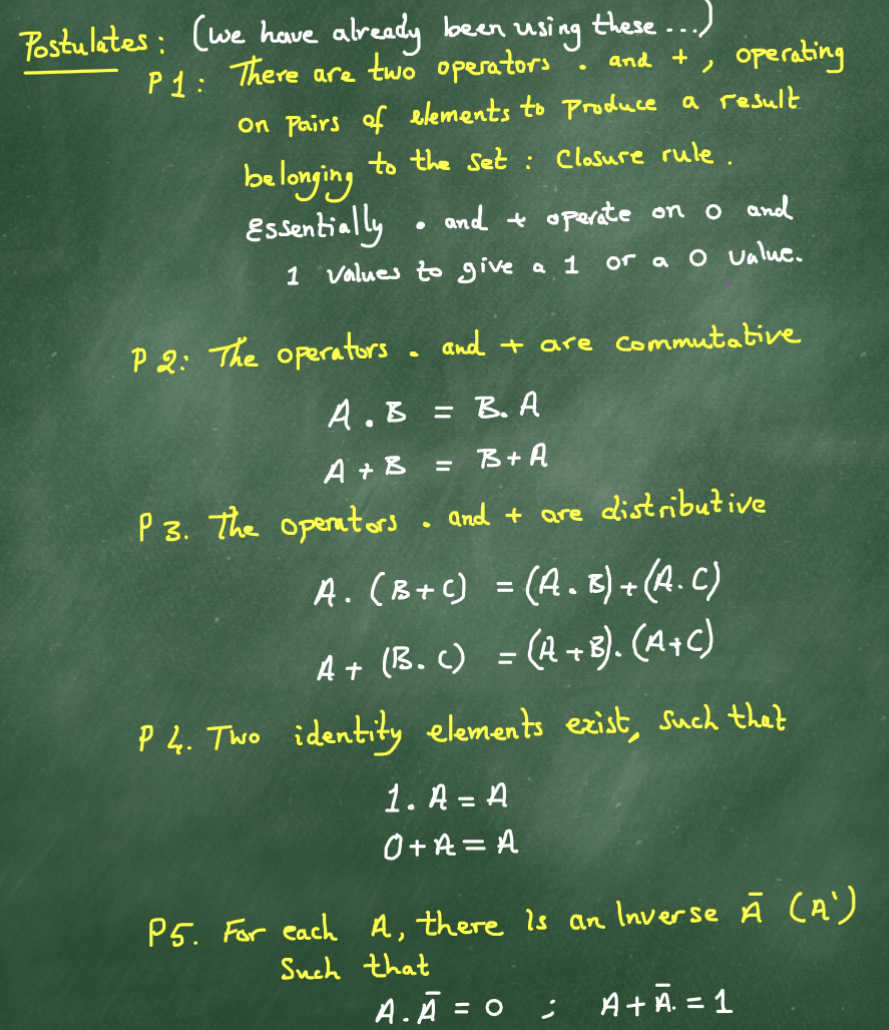 Postulates: (we have already been using these...)
P1: There are two operators . and +, operating
on pairs of elements to produce a result
belonging to the set : Closure rule.
Essentially . and + operate on 0 and
1 values to give a 1 or a 0 value.
P2: The operators . and + are commutative
A . B = B. A
A + B = B + A
P3. The operators . and + are distributive
A. (B+C) = (A . B) + (A. C)
A + (B. C) = (A + B). (A+C)
P4. Two identity elements exist, such that
1. A = A
0 + A = A
P5. For each A, there is an Inverse Ā (A')
Such that
A. Ā = 0 ; A + Ā. = 1